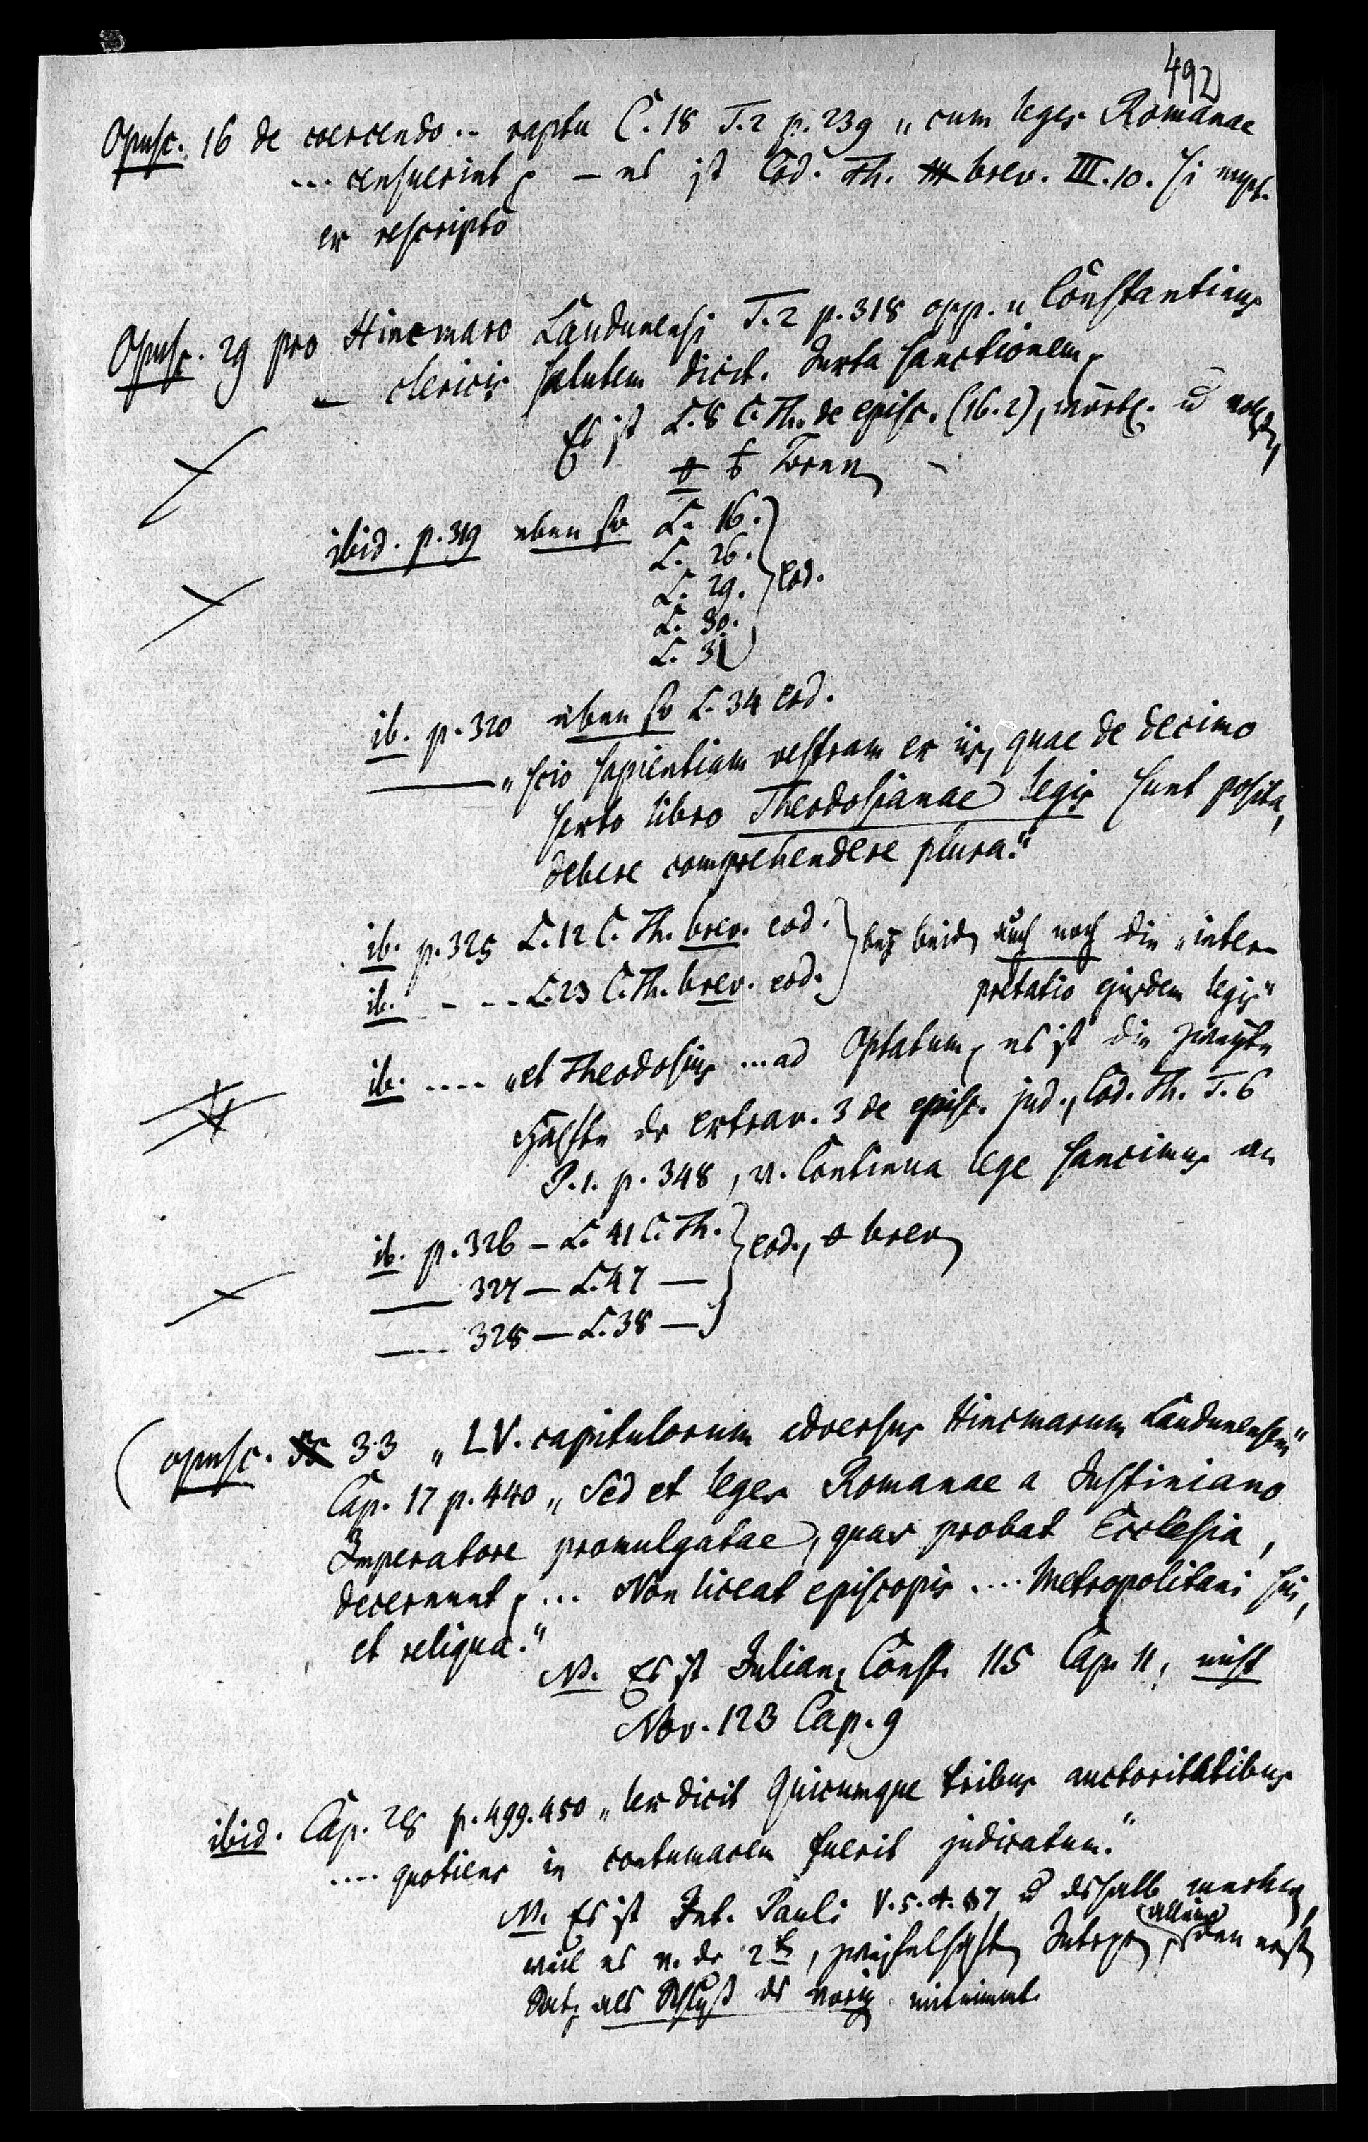 492
Opusc. 16 de coercendo .. raptu C. 18 T. 2 p. 239 „cum leges Romanae
... censuerint, – es ist Cod. Th. brev. III. 10. si nupt.
ex rescripto
Opusc. 29 pro Hincmaro Laudunensi T. 2 p. 318 opp. „Constantinus
– clericis salutem dicit. Juxta sanctionem,
Es ist L. 8 C. Th. de episc. (16.2), wörtl. u
ibid. p. 319 eben so L. 16.
L. 26.
L. 29. } eod.
L. 30.
L. 31
ib. p. 320 eben so L. 34 eod.
—— „scio sapientiam vestram ex iis, quae de decimo
sexto libro Theodosianae legis sunt posita,
debere comprehendere plura."
ib. p. 325 L. 12 C. Th. brev. eod. } bey beiden auch noch die „inter-
ib. - - - L. 23 C. Th. brev. eod. pretatio ejusdem legis"
ib. .... „et Theodosius ... ad Optatum, es ist die zweyte
Hälfte der extrav. 3 de episc. jud., Cod. Th. T. 6
P. 1. p. 348, v. Continua lege sancimus an
ib. p. 326 – L. 41 C. Th. } eod.,
—— 327 – L. 47 —
—— 328 – L. 38 —
(opusc. 33 „LV. capitulorum adversus Hincmarum Laudunensem"
Cap. 17 p. 440 „Sed et leges Romanae a Justiniano
Imperatore promulgatae, quas probat Ecclesia,
decernunt, ... Non liceat episcopis .... Metropolitani sui,
et reliqua."
N. Es ist Julian. Const. 115 Cap. 11, nicht
Nov. 123 Cap. 9
ibid. Cap. 28 p. 499. 450 „lex dicit Quicumque tribus auctoritatibus
.... quotiens in contumacem fuerit judicatum."
N. Es ist Int. Pauli V. 5. u deshalb merkw.,
weil es v. der 2t, zweifelhaften Interpr. allein den ersten
Satz als Schluß des vorig. mitnimmt